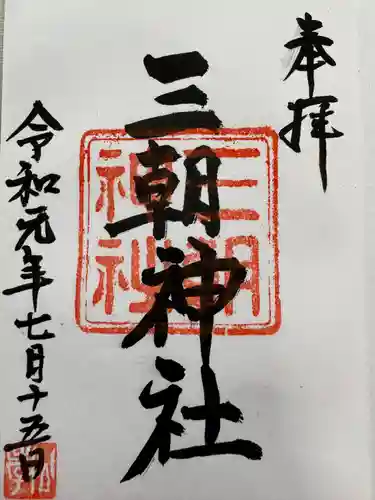 奉拝
三朝神社
三朝神社
令和元年七月十五日